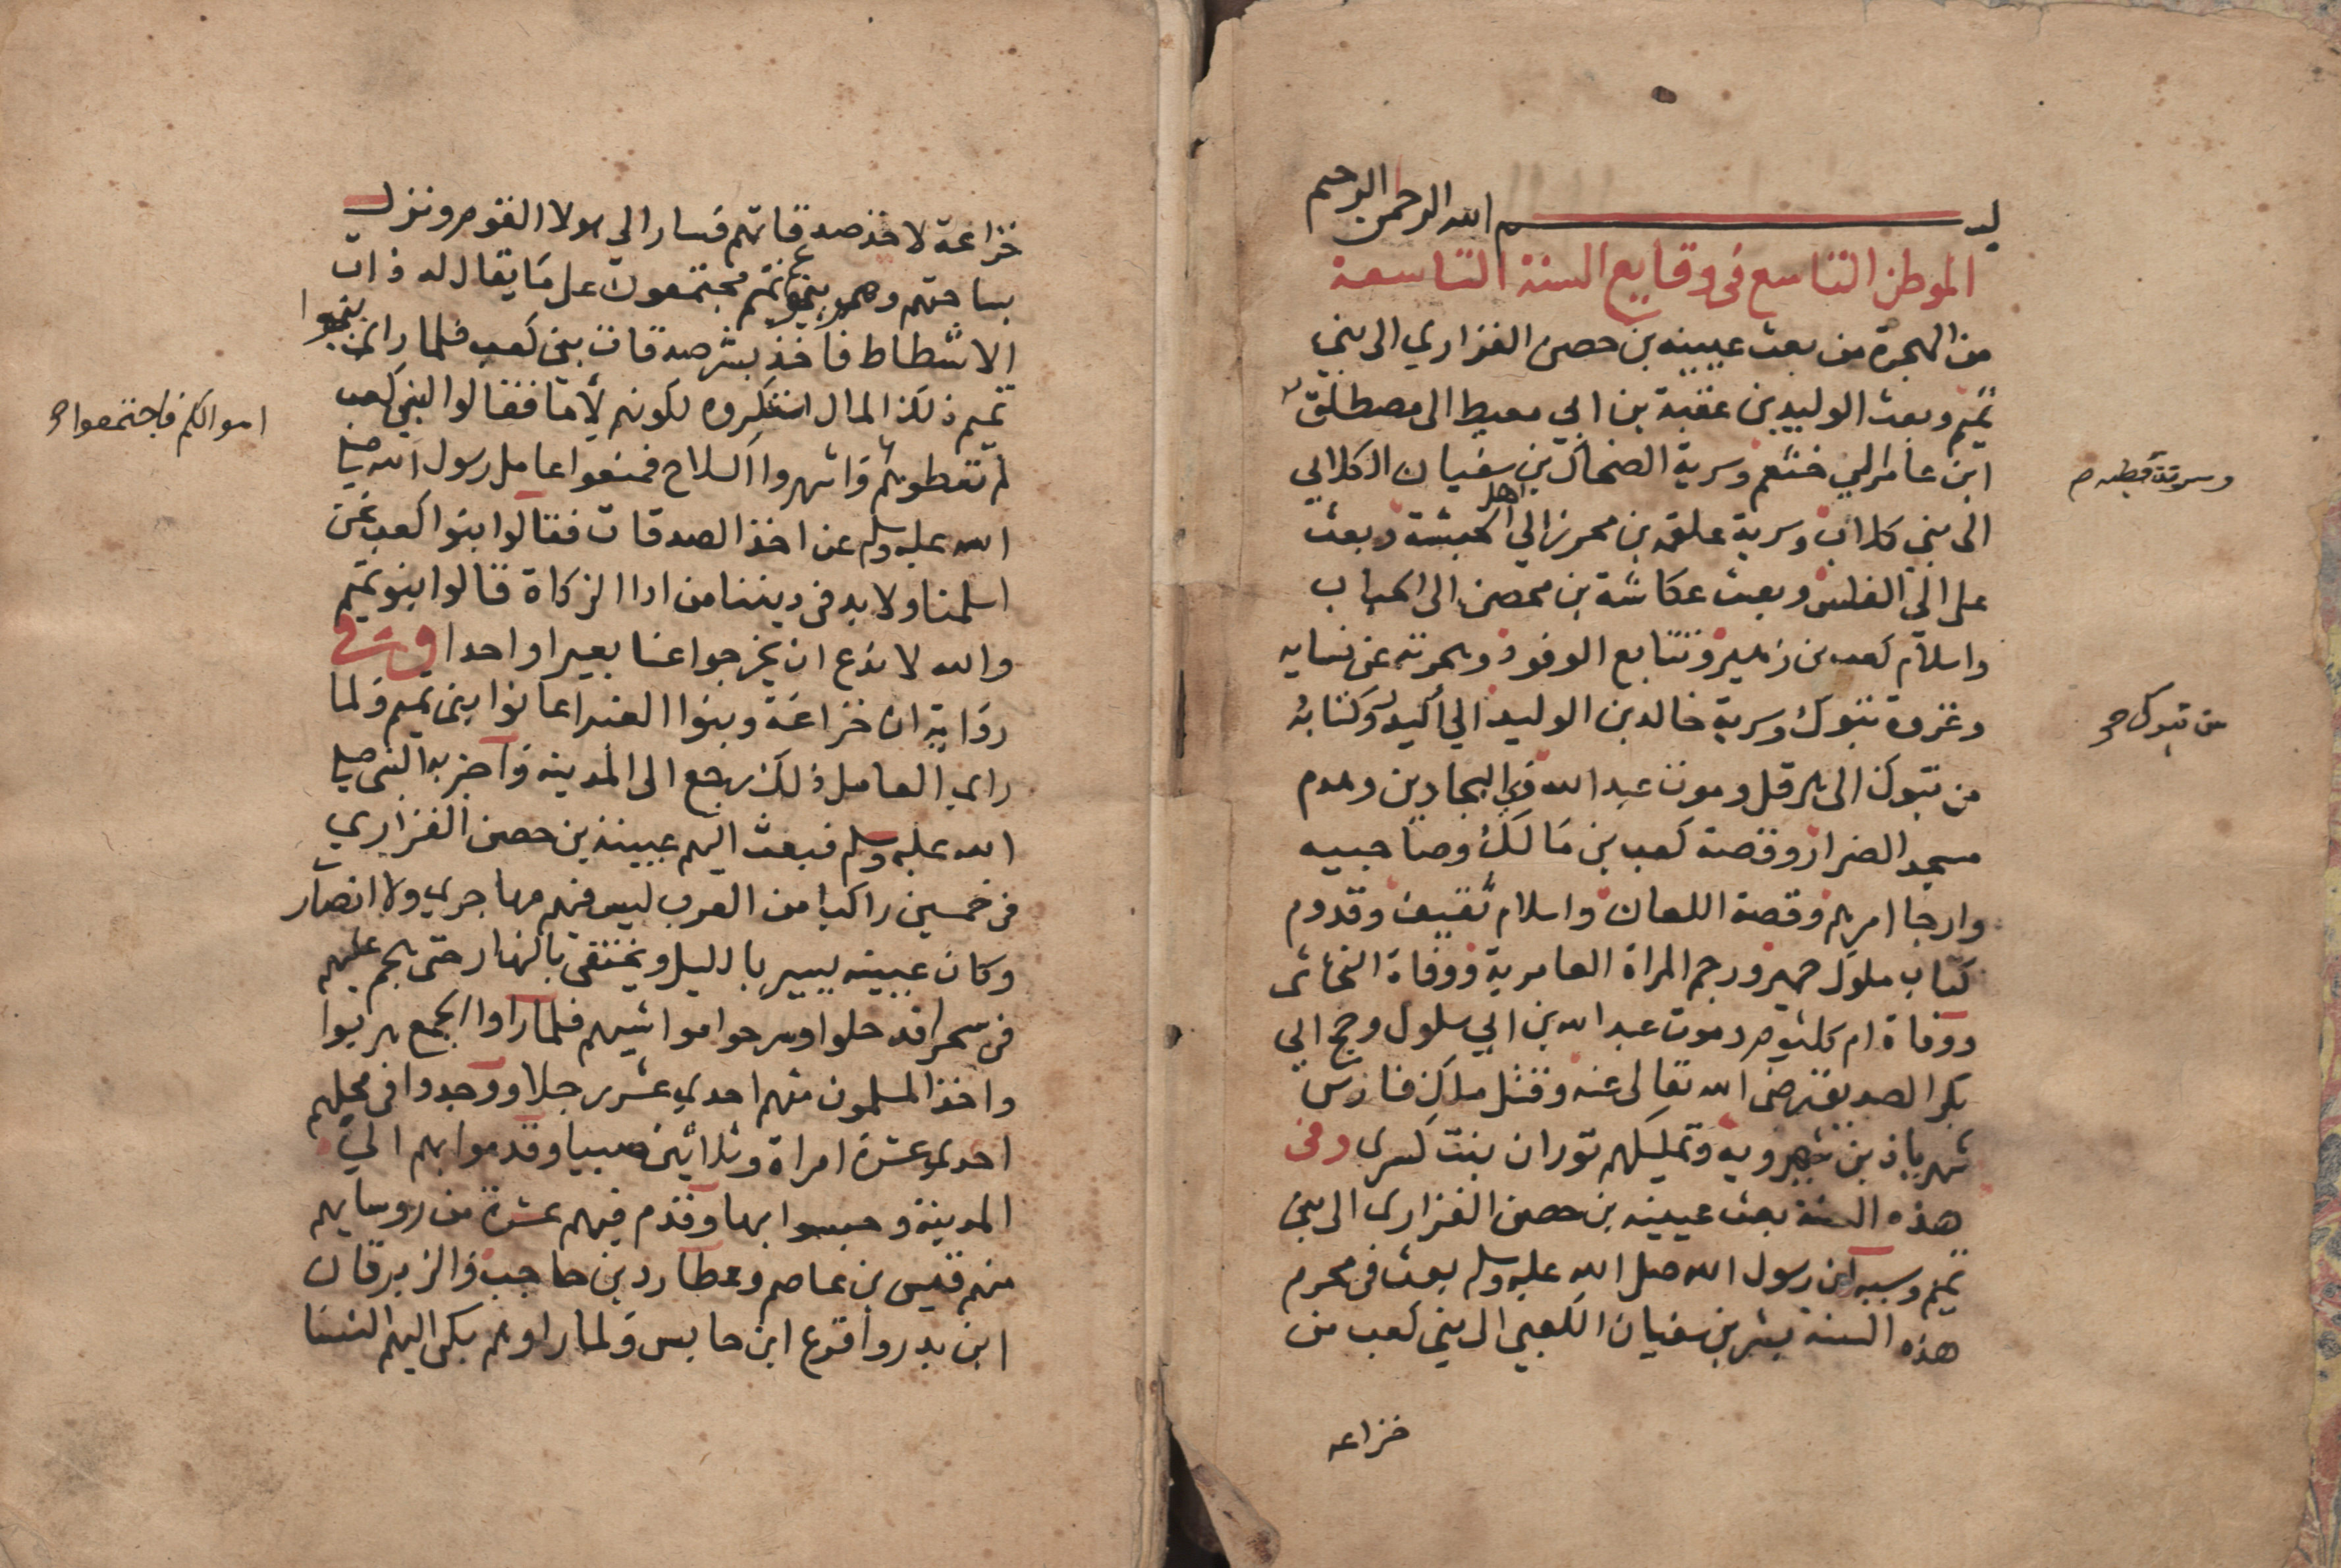 بسم الله الرحمن الرحيم
الموطن التاسع فى وقايع السنة التاسعة
من الهجرة من بعث عيينه بن حصن الفزاري الى بني
تميم وبعث الوليد بن عقبة بن ابي معيط الى مصطلق
وسرية قطبه
ابن عامر الي خثعم وسرية الضحاك بن سفيان الكلابي
الى بني كلاب وسرية علقمه بن محرز الي اهل الحبشة وبعث
على الي الفلس وبعث عكاشة بن محصن الى الحباب
واسلام كعب بن زهير وتتابع الوفود وهجرته عن نسايه
وغزوة تبوك وسرية خالد بن الوليد الي اكيدر وكتابه
من تبوك
من تبوك الى هرقل وموت عبد الله ذي البجادين وهدم
مسجد الضرار وقصة كعب بن مالك وصاحبيه
وارجا امرهم وقصة اللعان واسلام ثقيف وقدوم
كتاب ملوك حمير ورجم المراة العامرية ووفاة النجاشى
ووفاة ام كلثوم وموت عبد الله بن ابي سلول وحج ابي
بكر الصديق رضى الله تعالى عنه وقتل ملك فارس
شهرياذ بن شيرويه وتمليكهم توران بنت كسرى وفى
هذه السنة بعث عيينه بن حصن الفزارى الى بني
تميم وسببه ان رسول الله صلى الله عليه وسلم بعث فى محرم
هذه السنة بشر بن سفيان الكعبي الى بني كعب من
خزاعه
خزاعة لاخذ صدقاتهم فسار الي هولا القوم ونزل
بساحتهم وهم مع بنو تميم مجتمعون على ما يقال له ذات
الاشطاط فاخذ بشر صدقات بني كعب فلما راى بنوا
تميم ذلك المال استكروه لكونهم لأما فقالوا لبني كعب
اموالكم فاجتمعوا
لم تعطوهم واشهروا السلاح فمنعوا عامل رسول الله صلى
الله عليه وسلم عن اخذ الصدقات فقالوا بنوا كعب نحن
اسلمنا ولا بد فى ديننا من ادا الزكاة قالوا بنو تميم
والله لا ندع ان يخرجوا عنا بعيرا واحدا وفى
رواية ان خزاعة وبنوا العنبر اعانوا بنى تميم ولما
راى العامل ذلك رجع الى المدينه واخبر به النبى صلى
الله عليه وسلم فبعث اليهم عيينة بن حصن الفزاري
فى خمسين راكبا من العرب ليس فيهم مهاجري ولا انصار
وكان عيينه يسير بالليل ويختفى بالنهار حتى هجم عليهم
فى سحر قد حلوا وسرحوا مواشيهم فلما راوا الجمع هربوا
واخذ المسلمون منهم احدي عشر رجلا ووجدوا فى محلهم
احدى عشرة امراة وثلاثين صبيا وقدموا بهم الي
المدينة وحبسوا بها وقدم فيهم عشرة من روسايهم
منهم قيس بن عاصم وعطارد بن حاجب والزبرقان
ابن بدر واقرع ابن حابس ولما راوهم بكى اليهم النسا